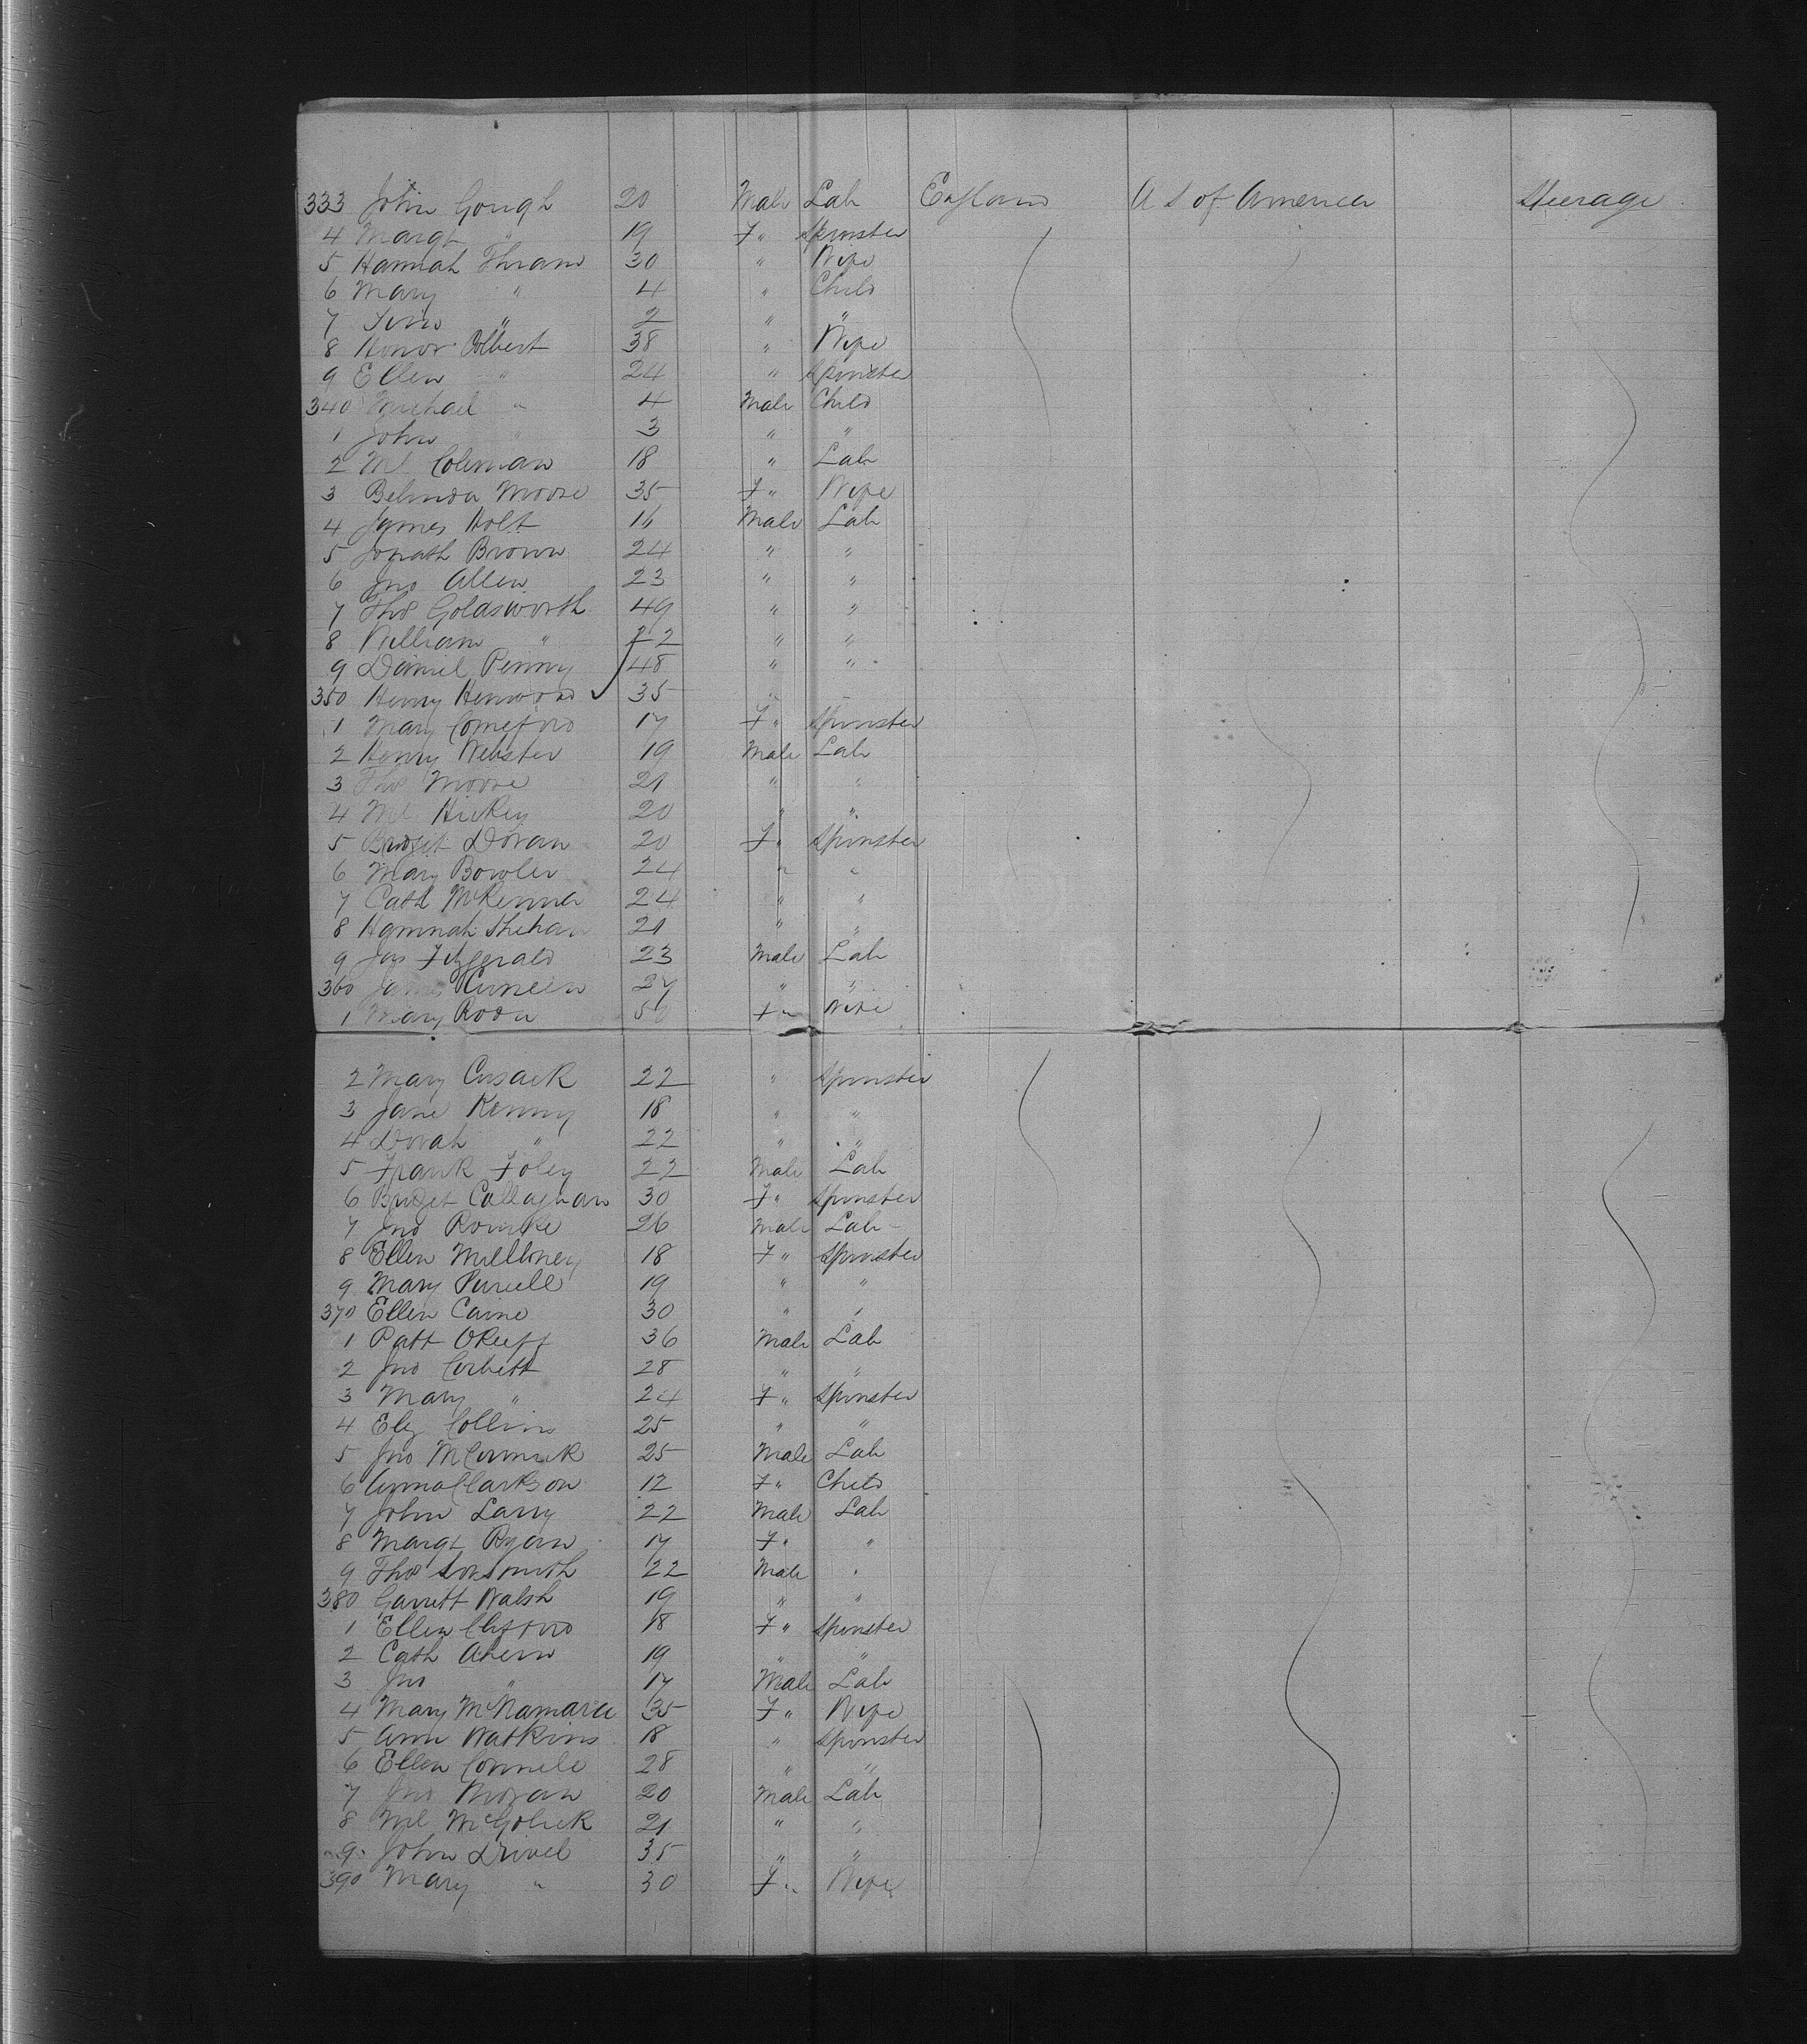 333 John Gough 20 Male Lab England U S of America Steerage
4 Margt " 19 F " Spinster
5 Hannah 30 " Wife
6 Mary " 4 " Child
7 " 2 " "
8 Honor Colbert 38 " Wife
9 Ellen " 24 " Spinster
340 Michael " 4 Male Child
1 John " 3 " "
2 Ml Coleman 18 " Lab
3 Belinda Moore 35 F " Wife
4 James Holt 16 Male Lab
5 Jonath Brown 24 " "
6 Jno Allen 23 " "
7 Thos Goldsworth 49 " "
8 William " 22 " "
9 Daniel Penny 48 " "
350 Henry Henwood 35 " "
1 Mary Comeford 17 F " Spinster
2 Henry Webster 19 Male Lab
3 Thos Moore 21 " "
4 Ml Hickey 20 " "
5 Bridget Doran 20 F " Spinster
6 Mary Bowler 24 " "
7 Cath McKenna 24 " "
8 Hannah Shehan 21 " "
9 Jas Fitzgerald 23 Male Lab
360 James Cuneen 27 " "
1 Mary Roda F " Wife
2 Mary Cusack 22 " Spinster
3 Jane Kenny 18 " "
4 Dorah " 22 " "
5 Frank Foley 22 Male Lab
6 Bridget Callaghan 30 F " Spinster
7 Jno Rourke 26 Male Lab
8 Ellen Mulloney 18 F " Spinster
9 Mary Purcell 19 " "
370 Ellen Caine 30 " "
1 Patt OKeeff 36 Male Lab
2 Jno Corbett 28 " "
3 Mary " 24 F " Spinster
4 Eliz Collins 25 " "
5 Jno McCormick 25 Male Lab
6 Anna Clarkson 12 F " Child
7 John Larry 22 Male Lab
8 Margt Ryan 17 F " "
9 Thos 22 Male "
380 Garrett Walsh 19 " "
1 Ellen Clifford 18 F " Spinster
2 Cath Ahern 19 " "
3 Jno " 17 Male Lab
4 Mary McNamara 35 F " Wife
5 Ann Watkins 18 " Spinster
6 Ellen Connell 28 " "
7 Jno Moran 20 Male Lab
8 Ml McGolrick 21 " "
9 John Drivel 35 " "
390 Mary " 30 F " Wife